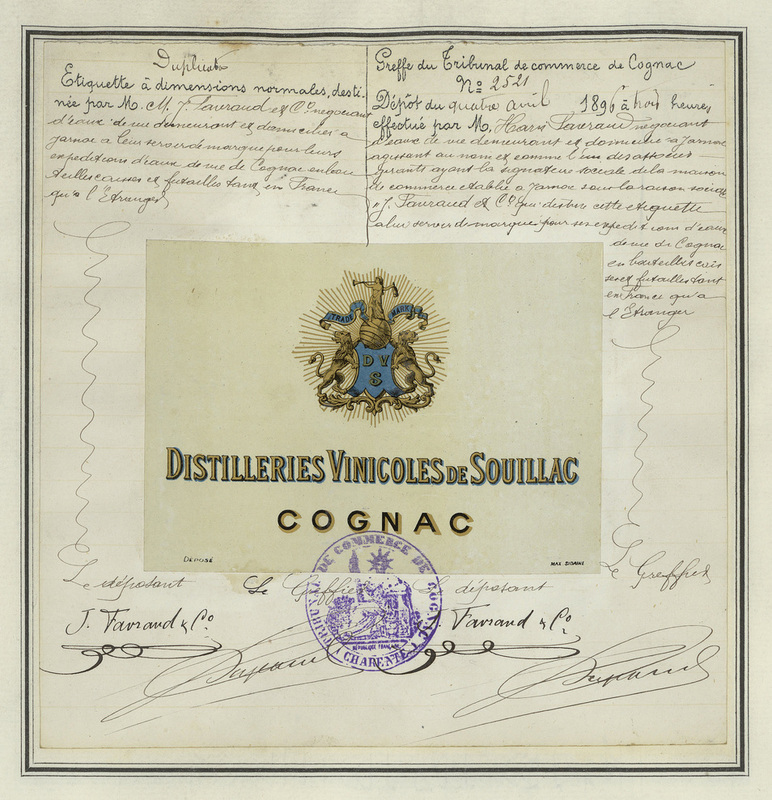 Duplicata
Etiquette à dimensions normales, desti-
née par M. M. J. Favraud et Cº négociant
d'eaux de vie demeurant et domiciliés à
Jarnac à leur servir de marque pour leurs
expéditions d'eaux de vie de Cognac en bou
teilles caisses et futailles tant en France
qu'à l'Etranger
Greffe du Tribunal de commerce de Cognac
Nº 2521
Dépôt du quatre avril 1896 à trois heures
effectué par M. Henri Favraud négociant
d'eaux de vie demeurant et domicilié à Jarnac
agissant au nom et comme l'un des associés
gérants ayant la signature sociale de la maison
de commerce établie à Jarnac sous la raison sociale
"J. Favraud et Cº" qui destine cette étiquette
à lui servir de marque pour ses expéditions d'eaux
de vie de Cognac
en bouteilles cais
ses et futailles tant
en France qu'à
l'Etranger
TRADE MARK
D V
S
DISTILLERIES VINICOLES DE SOUILLAC
COGNAC
DÉPOSÉ
Le déposant Le Greffier Le déposant Le Greffier
J. Favraud & Co
Favraud & Co
TRIBUNAL DE COMMERCE DE COGNAC
RÉPUBLIQUE FRANÇAISE
(CHARENTE)